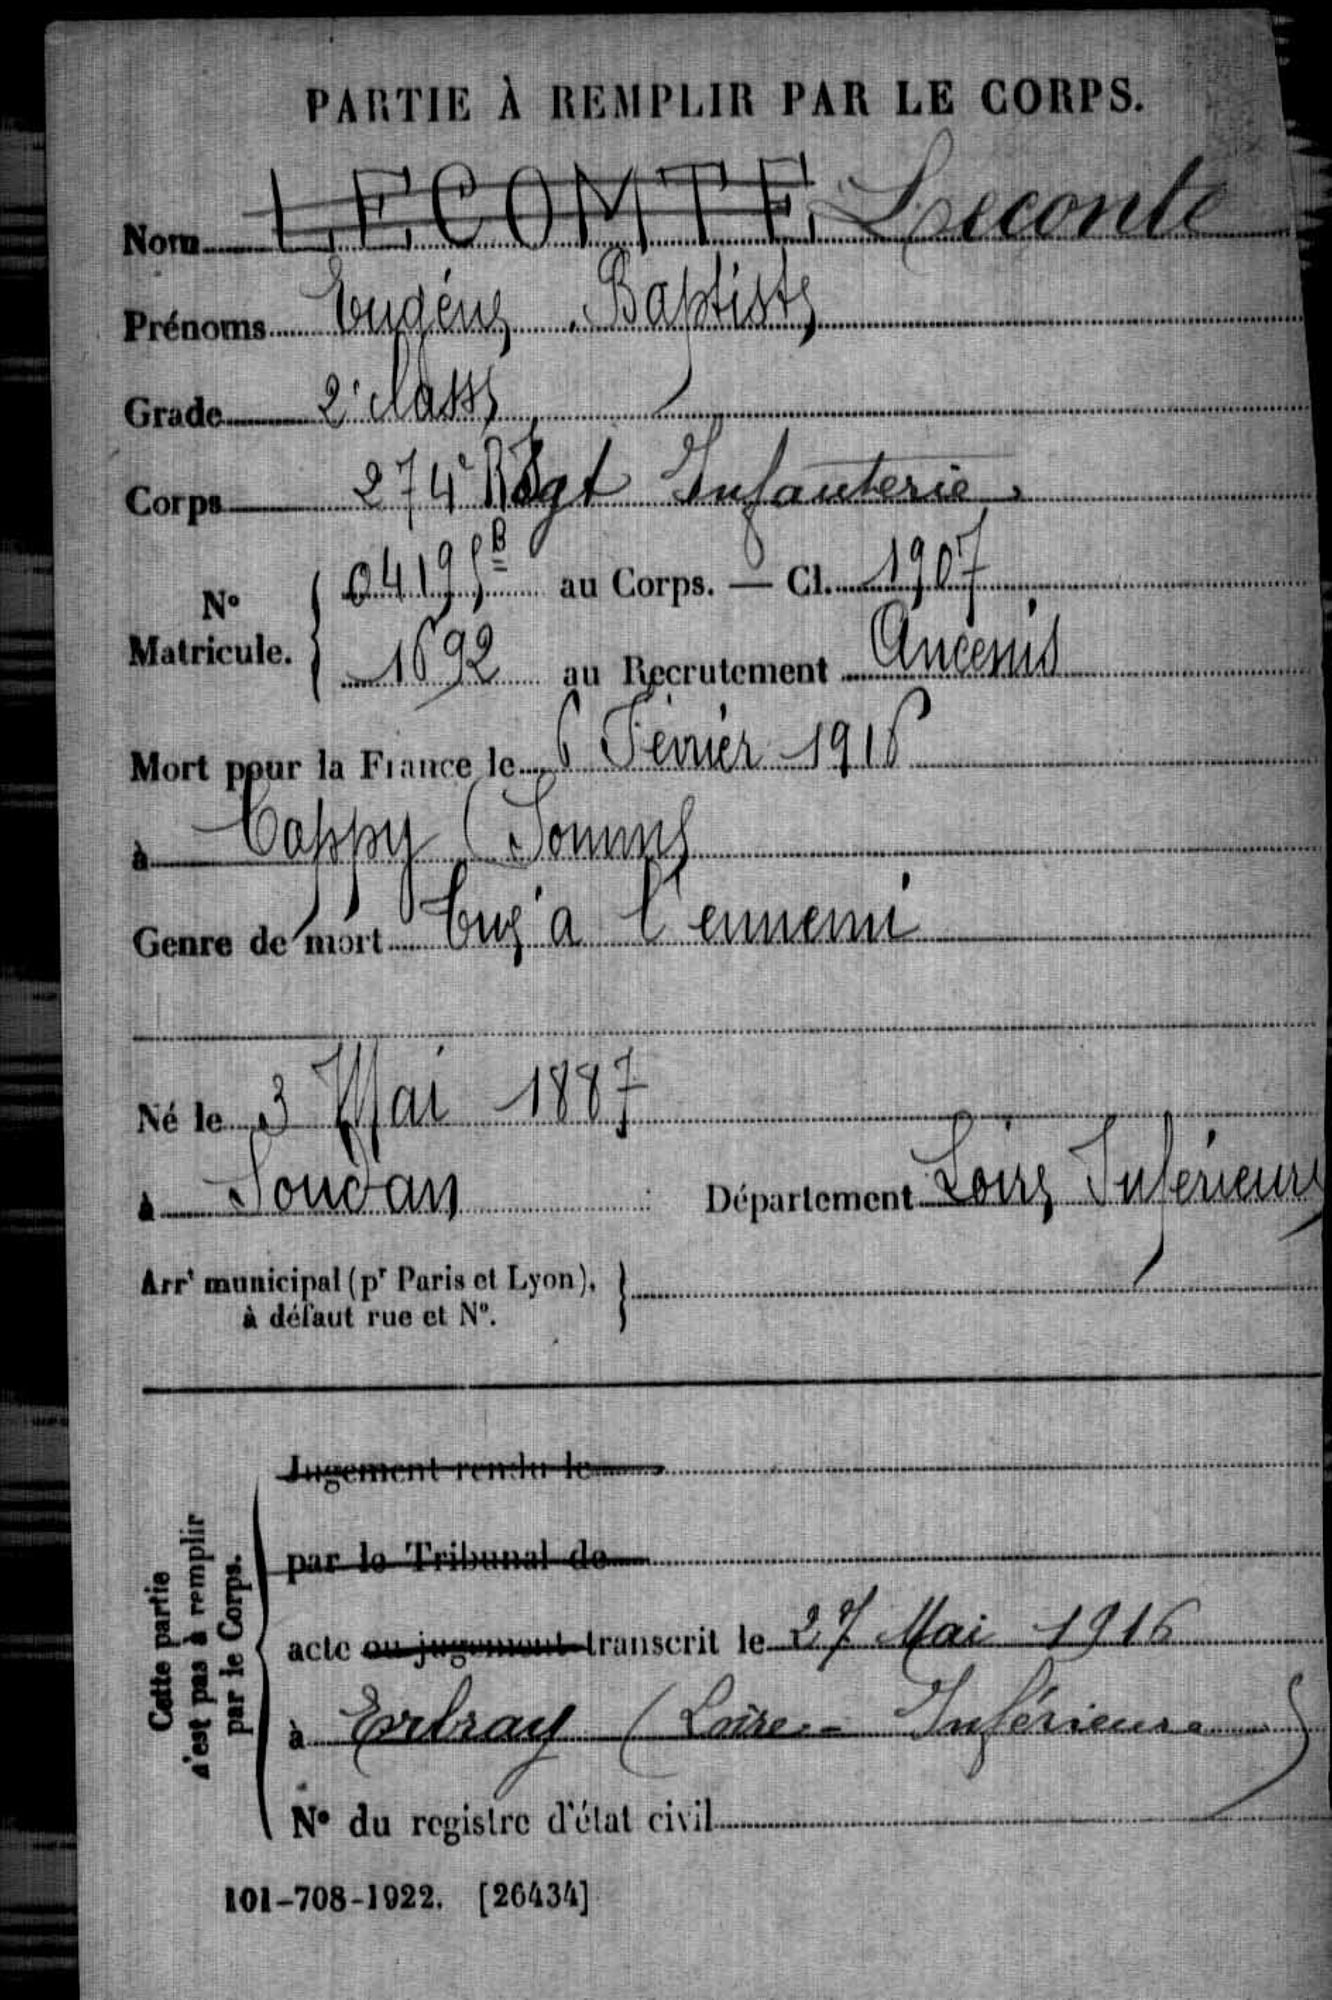 PARTIE À REMPLIR PAR LE CORPS.
Nom LECOMTE Leconte
Prénoms Eugène Baptiste
Grade 2e classe
Corps 274e Regt Infanterie
N° Matricule. 04195B au Corps. — Cl. 1907
1692 au Recrutement Ancenis
Mort pour la France le 6 Février 1916
à Cappy (Somme
Genre de mort Tué à l'ennemi
Né le 3 Mai 1887
à Soudan Département Loire Inférieure
Arrt municipal (pr Paris et Lyon),
à défaut rue et N°.
Cette partie
n'est pas à remplir
par le Corps.
Jugement rendu le
par le Tribunal de
acte ou jugement transcrit le 27 Mai 1916
à Erbray (Loire-Inférieure)
N° du registre d'état civil
101-708-1922. [26434]